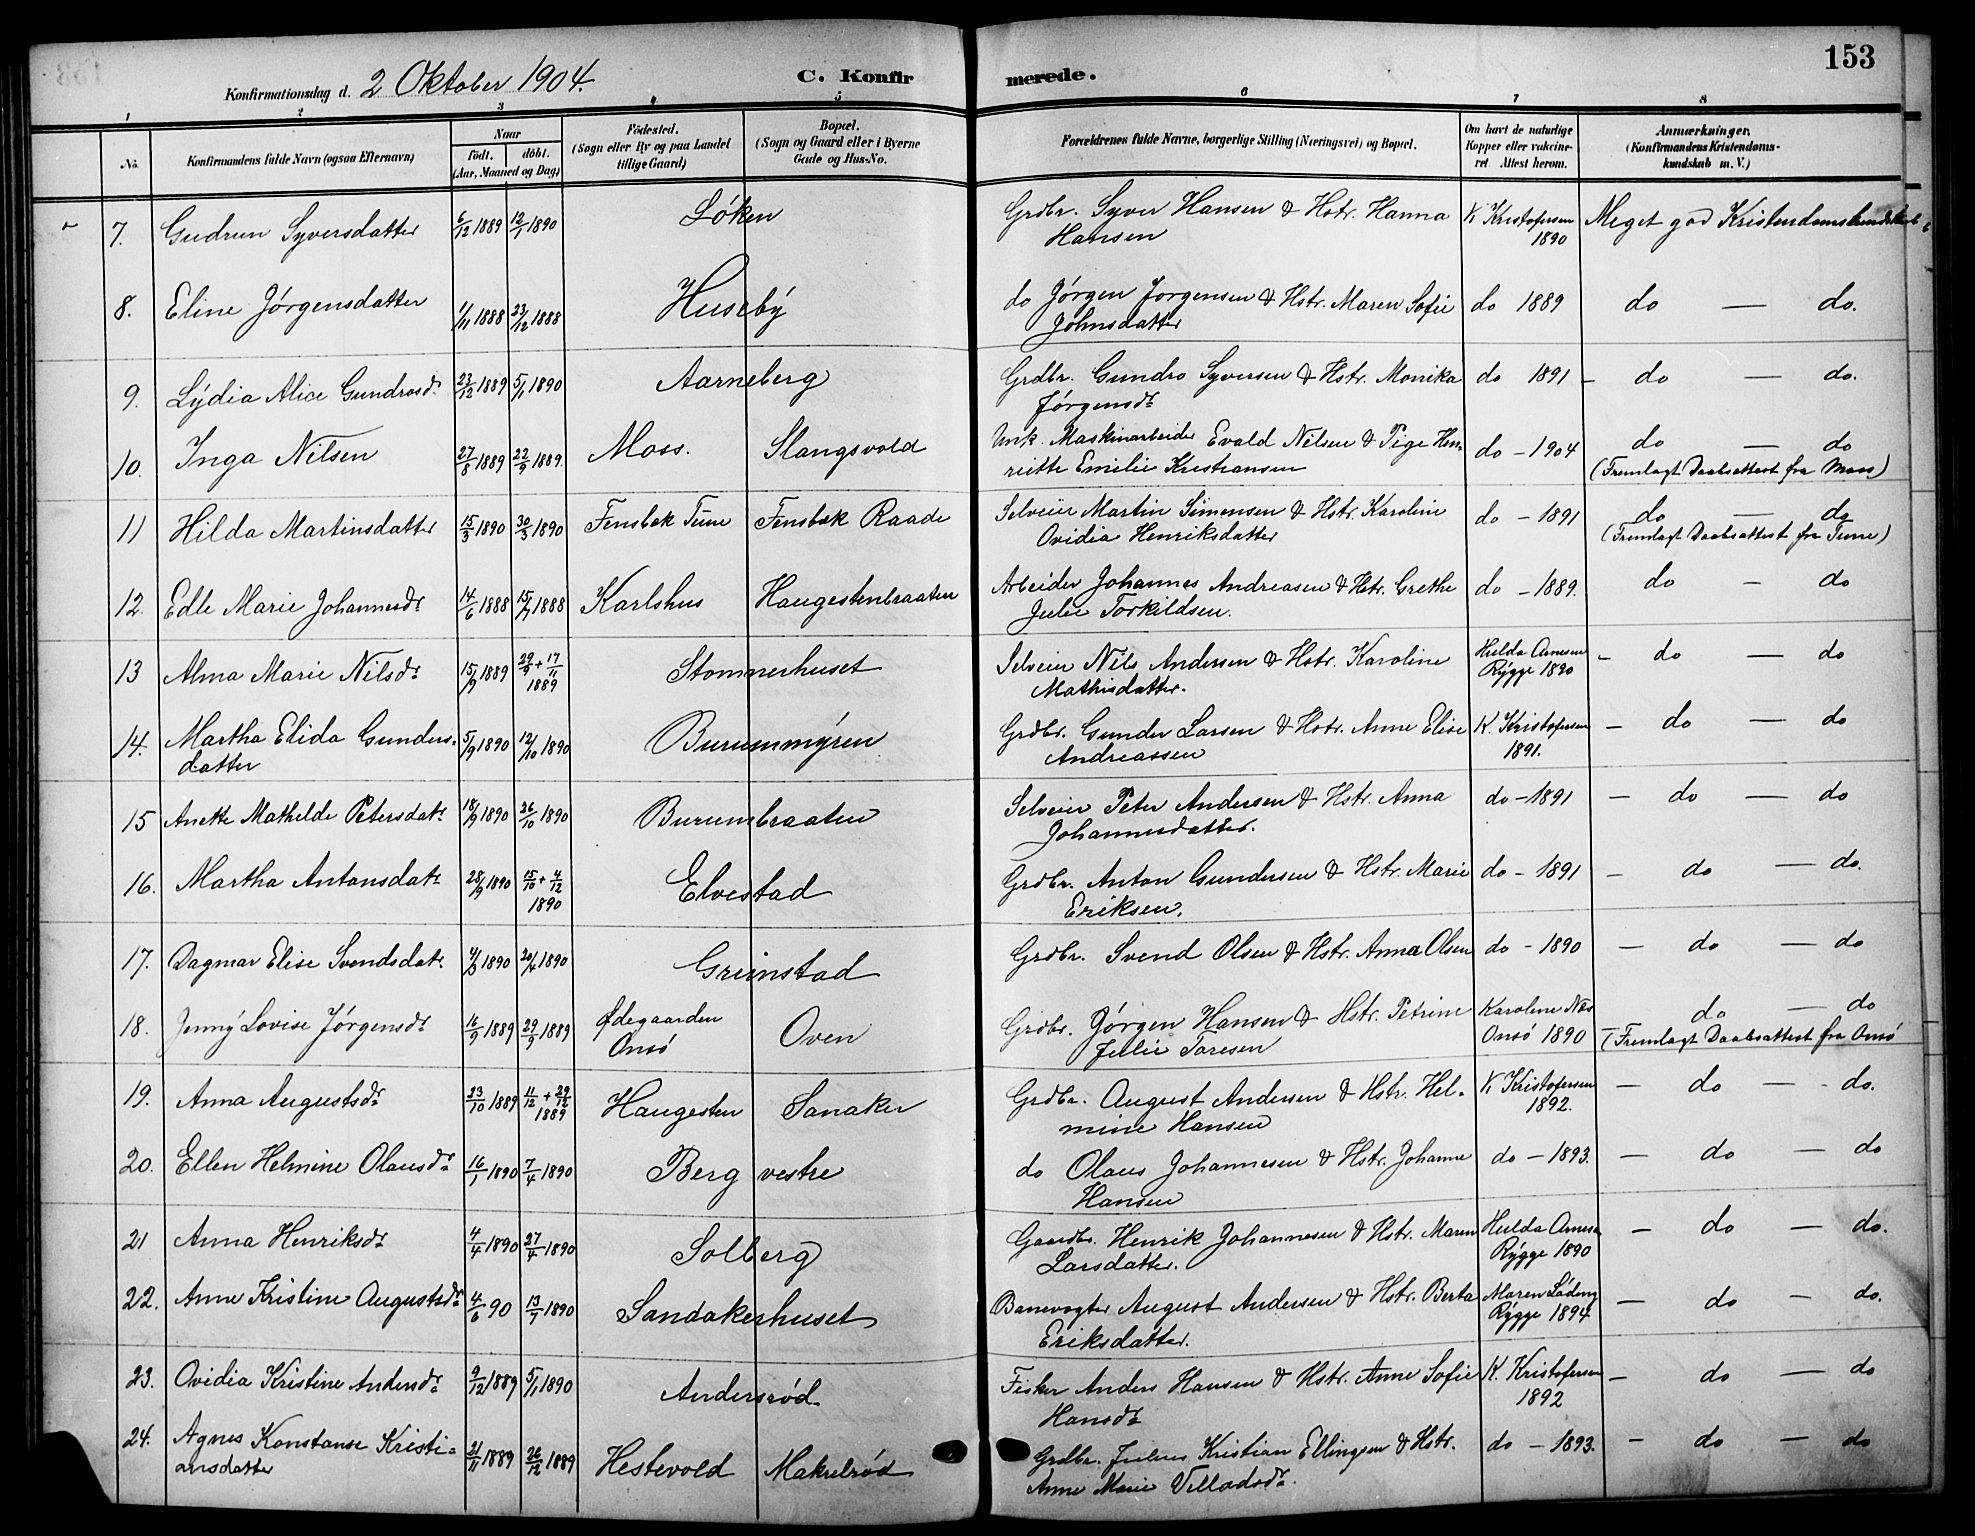 153
Konfirmationsdag d. 2 Oktober 1904.
C. Konfir
merede.
1 2 3 4 5 6 7 8
No.
Konfirmandens fulde Navn (ogsaa Efternavn)
Naar
født. døbt.
(Aar, Maaned og Dag)
Fødested.
(Sogn eller By og paa Landet
tillige Gaard)
Bopæl.
(Sogn og Gaard eller i Byerne
Gade og Hus-No.
Forældrenes fulde Navne, borgerlige Stilling (Næringsvei) og Bopæl.
Om havt de naturlige
Kopper eller vakcine-
ret Attest herom.
Anmærkninger.
(Konfirmandens Kristendoms-
kundskab m. V.)
7. Gudrun Syversdatter 6/12 1889 12/1 1890 Løken Grdbr. Syver Hansen & Hstr. Hanna K Kristofersen Meget god Kristendomskundskab
Hansen 1890
8. Eline Jørgensdatter 1/11 1888 23/12 1888 Huseby do Jørgen Jørgensen & Hstr. Maren Sofie do 1889 do — do.
Johnsdatter
9. Lydia Alice Gundrosdr 23/12 1889 5/1 1890 Aarneberg Grdbr. Gundro Syversen & Hstr. Monika do 1891 – do — do.
Jørgensdr
10. Inga Nilsen 27/8 1889 22/9 1889. Moss. Slangsvold Unk. Maskinarbeider Evald Nilsen & Pige Hen- do – 1904 do — do
riette Emilie Kristiansen (Fremlagt Daabsattest fra Moss)
11 Hilda Martinsdatter 15/3 1890 30/3 1890 Fensbæk Tune Fensbæk Raade Selveier Martin Simensen & Hstr. Karoline do – 1891 do — do
Ovidia Henriksdatter (Fremlagt Daabsattest fra Tune)
12. Edle Marie Johannesdr 14/6 1888 15/7 1888 Karlshus Haugestenbraaten Arbeider Johannes Andreasen & Hstr. Grethe do – 1889. do – do
Julie Torkildsen.
13 Alma Marie Nilsdr 15/9 1889 29/9 + 17/11 1889 Stomnerhuset Selveier Nils Andersen & Hstr. Karoline Hulda Arnesen – do — do
Mathisdatter. Rygge 1890
14. Martha Elida Gunders- 5/9 1890 12/10 1890 Burummyren Grdbr. Gunder Larsen & Hstr. Anne Elise K. Kristofersen – do — do
datter Andreassen 1891.
15 Anette Mathilde Petersdatr 18/9 1890 26/10 1890 Burumbraaten Selveier Peter Andersen & Hstr. Anna do – 1891 – do — do
Johannesdatter.
16. Martha Antonsdatr 28/9 1890 15/10 + 4/12 1890 Elvestad Grdbr. Anton Gundersen & Hstr. Marie do – 1891 – do — do.
Eriksen.
17. Dagmar Elise Svendsdatr 4/3 1890 20/4 1890 Grimstad Grdbr. Svend Olsen & Hstr. Anna Olsen do – 1890 – do — do
18. Jenny Lovise Jørgensdr 16/9 1889 29/9 1889 Ødegaarden Oven Grdbr. Jørgen Hansen & Hstr. Petrine Karoline Næs do — do
Onsö Julie Toresen Onsö 1890 (Fremlagt Daabsattest fra Onsö
19. Anna Augustsdr 23/10 1889 11/12 + 29/12 1889 Haugesten Sanaker Grdbr. August Andersen & Hstr. Hel- K Kristofersen – do — do.
mine Hansen 1892.
20. Ellen Helmine Olausdr 16/1 1890 7/4 1890 Berg vestre do Olaus Johannesen & Hstr. Johanne do – 1893. – do — do
Hansen
21 Anna Henriksdr 4/4 1890 27/4 1890 Solberg Gaardbr. Henrik Johannesen & Hstr. Maren Hulda Arnesen – do — do.
Larsdatter. Rygge 1890
22. Anne Kristine Augustsdr 4/6 90 13/7 1890 Sandakerhuset Banevogter August Andersen & Hstr. Berta Maren – do – do.
Eriksdatter. Rygge 1894
23. Ovidia Kristine Andersdr 9/12 1889 5/1 1890 Andersrød Fisker Anders Hansen & Hstr. Anne Sofie K. Kristofersen – do — do
Hansdr 1892
24. Agnes Konstanse Kristi- 21/11 1889 26/12 1889 Hestevold Makrelrød Grdbr. Julius Kristian Ellingsen & Hstr. do – 1893. – do — do
ansdatter Anne Marie Villadsdr.